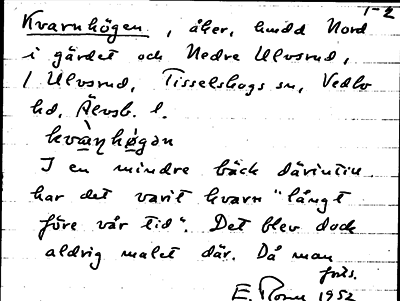 1-2
Kvarnhögen, åker, Nord
i gärdet och Nedre Ulvsrud,
/ Ulvsrud, Tisselskogs sn, Vedbo
hd, Älvsb. l.
kvà̱ŋhø̱gən
I en mindre bäck därintill
har det varit kvarn "långt
före vår tid". Det blev dock
aldrig malet där. Då man
forts.
E. 1952